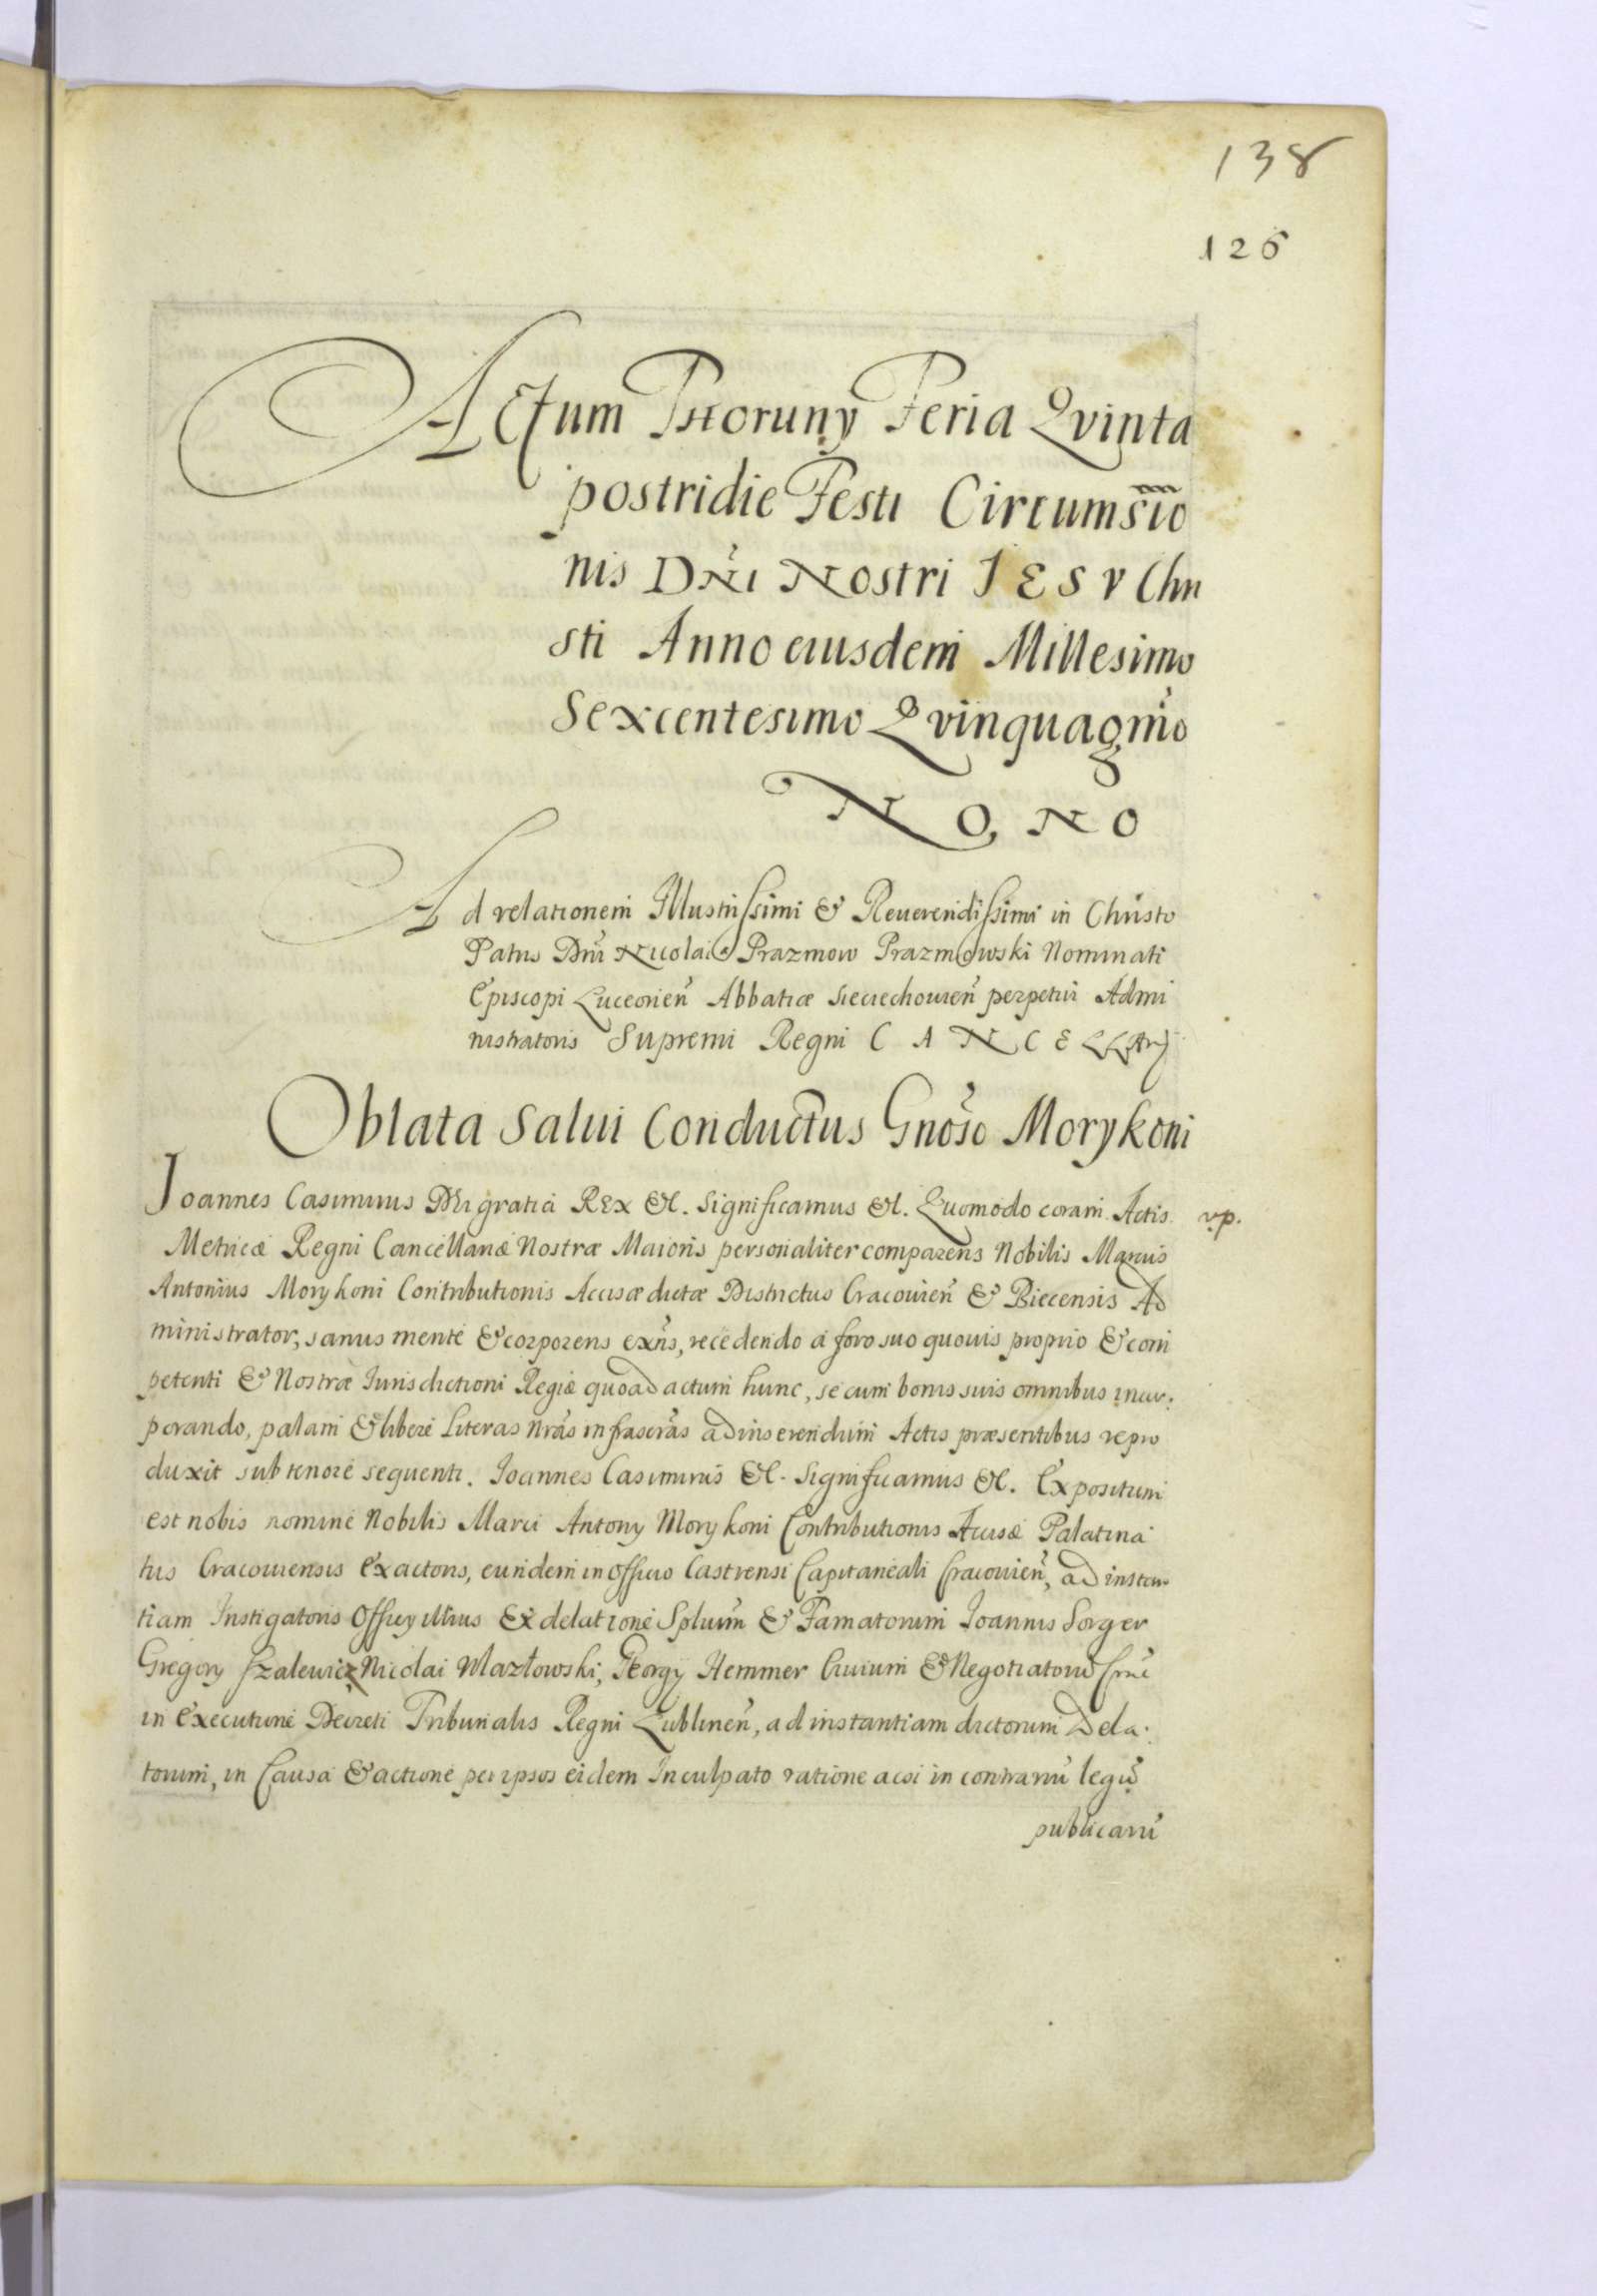 138
126
Actum Thoruny Feria Qvinta
postridie Festi Circumsio
nis Dni Nostri IESV Chri
sti Anno eiusdem Millesimo
Sexcentesimo Qvinquagmo
NONO
Ad relationem Illustrissimi & Reuerendissimi in Christo
Patris Dni Nicolai a Prazmow Prazmowski Nominati
Episcopi Luceorien Abbatiæ Sieciechouien perpetui Admi
nistratoris Supremi Regni CANCELLArij
Oblata Salui Conductus Gnoso Morykoni
Ioannes Casimirus Dei gratia Rex &c. Significamus &c. Quomodo coram Actis vp.
Metricæ Regni Cancellariæ Nostræ Maioris personaliter comparens Nobilis Marcus
Antonius Morykoni Contributionis Accisæ dictæ Districtus Cracouien & Biecensis Ad
ministrator, sanus mente & corporens exns, recedendo a foro suo quouis proprio & com
petenti & Nostræ Iurisdictioni Regiæ quoad actum hunc, se cum bonis suis omnibus incor:
porando, palam & libere Literas nras infrascras ad inserendum Actis præsentibus repro
duxit sub tenore sequenti. Ioannes Casimirus &c. Significamus &c. Expositum
est nobis nomine Nobilis Marci Antony Morykoni Contributionis Accisæ Palatina
tus Cracouiensis Exactoris, eundem in Officio Castrensi Capitaneali Cracouien, ad instan
tiam Instigatoris Officy illius Ex delatione Spluum & Famatorum Ioannis Sorger
Gregory Szalewicz Nicolai Mazłowski, Georgy Hemmer Ciuium & Negotiatoru Crac
in Executione Decreti Tribunalis Regni Lublinen, ad instantiam dictorum Dela:
torum, in Causa & actione per ipsos eidem Inculpato ratione acsi in contrariu legu
publicaru